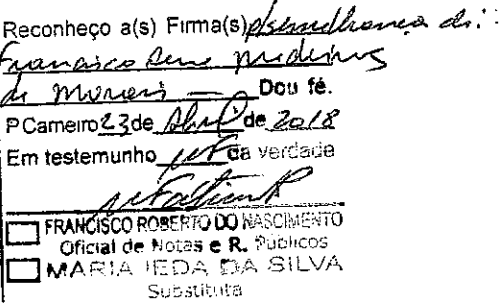 Reconheço a(s) Firma(s) p/semelhança de:
Francisco Rene Medeiros
de Morais — Dou fé.
P Carneiro 23 de Abril de 2018
Em testemunho da verdade
FRANCISCO ROBERTO DO NASCIMENTO
Oficial de Notas e R. Públicos
MARIA IEDA DA SILVA
Substituta